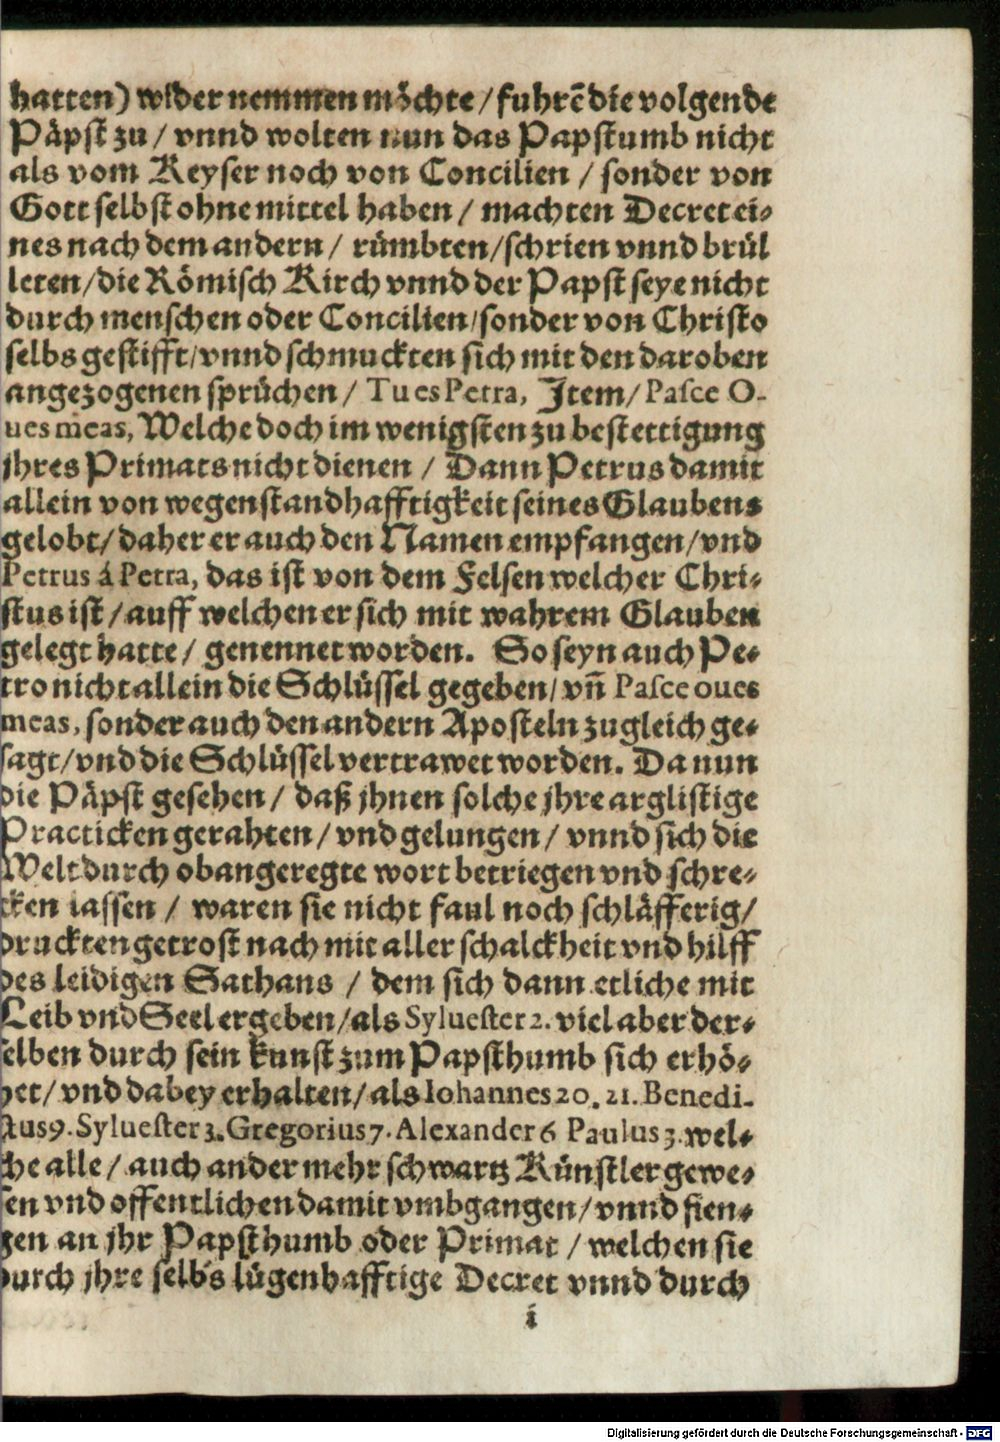 hatten) wider nemmen möchte / fuhrē die volgende
Päpst zu / vnnd wolten nun das Papstumb nicht
als vom Keyser noch von Concilien / sonder von
Gott selbst ohne mittel haben / machten Decret ei⸗
nes nach dem andern / rümbten / schrien vnnd brül
leten / die Römisch Kirch vnnd der Papst seye nicht
durch menschen oder Concilien / sonder von Christo
selbs gestifft / vnnd schmuckten sich mit den daroben
angezogenen sprüchen / Tu es Petra, Item / Pasce O-
ues meas, Welche doch im wenigsten zu bestettigung
jhres Primats nicht dienen / Dann Petrus damit
allein von wegen standhafftigkeit seines Glaubens
gelobt / daher er auch den Namen empfangen / vnd
Petrus á Petra, das ist von dem Felsen welcher Chri⸗
stus ist / auff welchen er sich mit wahrem Glauben
gelegt hatte / genennet worden. So seyn auch Pe⸗
tro nicht allein die Schlüssel gegeben / vñ Pasce oues
meas, sonder auch den andern Aposteln zugleich ge⸗
sagt / vnd die Schlüssel vertrawet worden. Da nun
die Päpst gesehen / daß jhnen solche jhre arglistige
Practicken gerahten / vnd gelungen / vnnd sich die
Welt durch obangeregte wort betriegen vnd schre⸗
cken lassen / waren sie nicht faul noch schläfferig /
druckten getrost nach mit aller schalckheit vnd hilff
des leidigen Sathans / dem sich dann etliche mit
Leib vnd Seel ergeben / als Syluester 2. viel aber der⸗
selben durch sein kunst zum Papsthumb sich erhö⸗
het / vnd dabey erhalten / als Iohannes 20. 21. Benedi-
ctus 9. Syluester 3. Gregorius 7. Alexander 6 Paulus 3. wel⸗
che alle / auch ander mehr schwartz Künstler gewe⸗
sen vnd offentlichen damit vmbgangen / vnnd fien⸗
gen an jhr Papsthumb oder Primat / welchen sie
durch jhre selbs lügenhafftige Decret vnnd durch
i
Digitalisierung gefördert durch die Deutsche Forschungsgemeinschaft - DFG